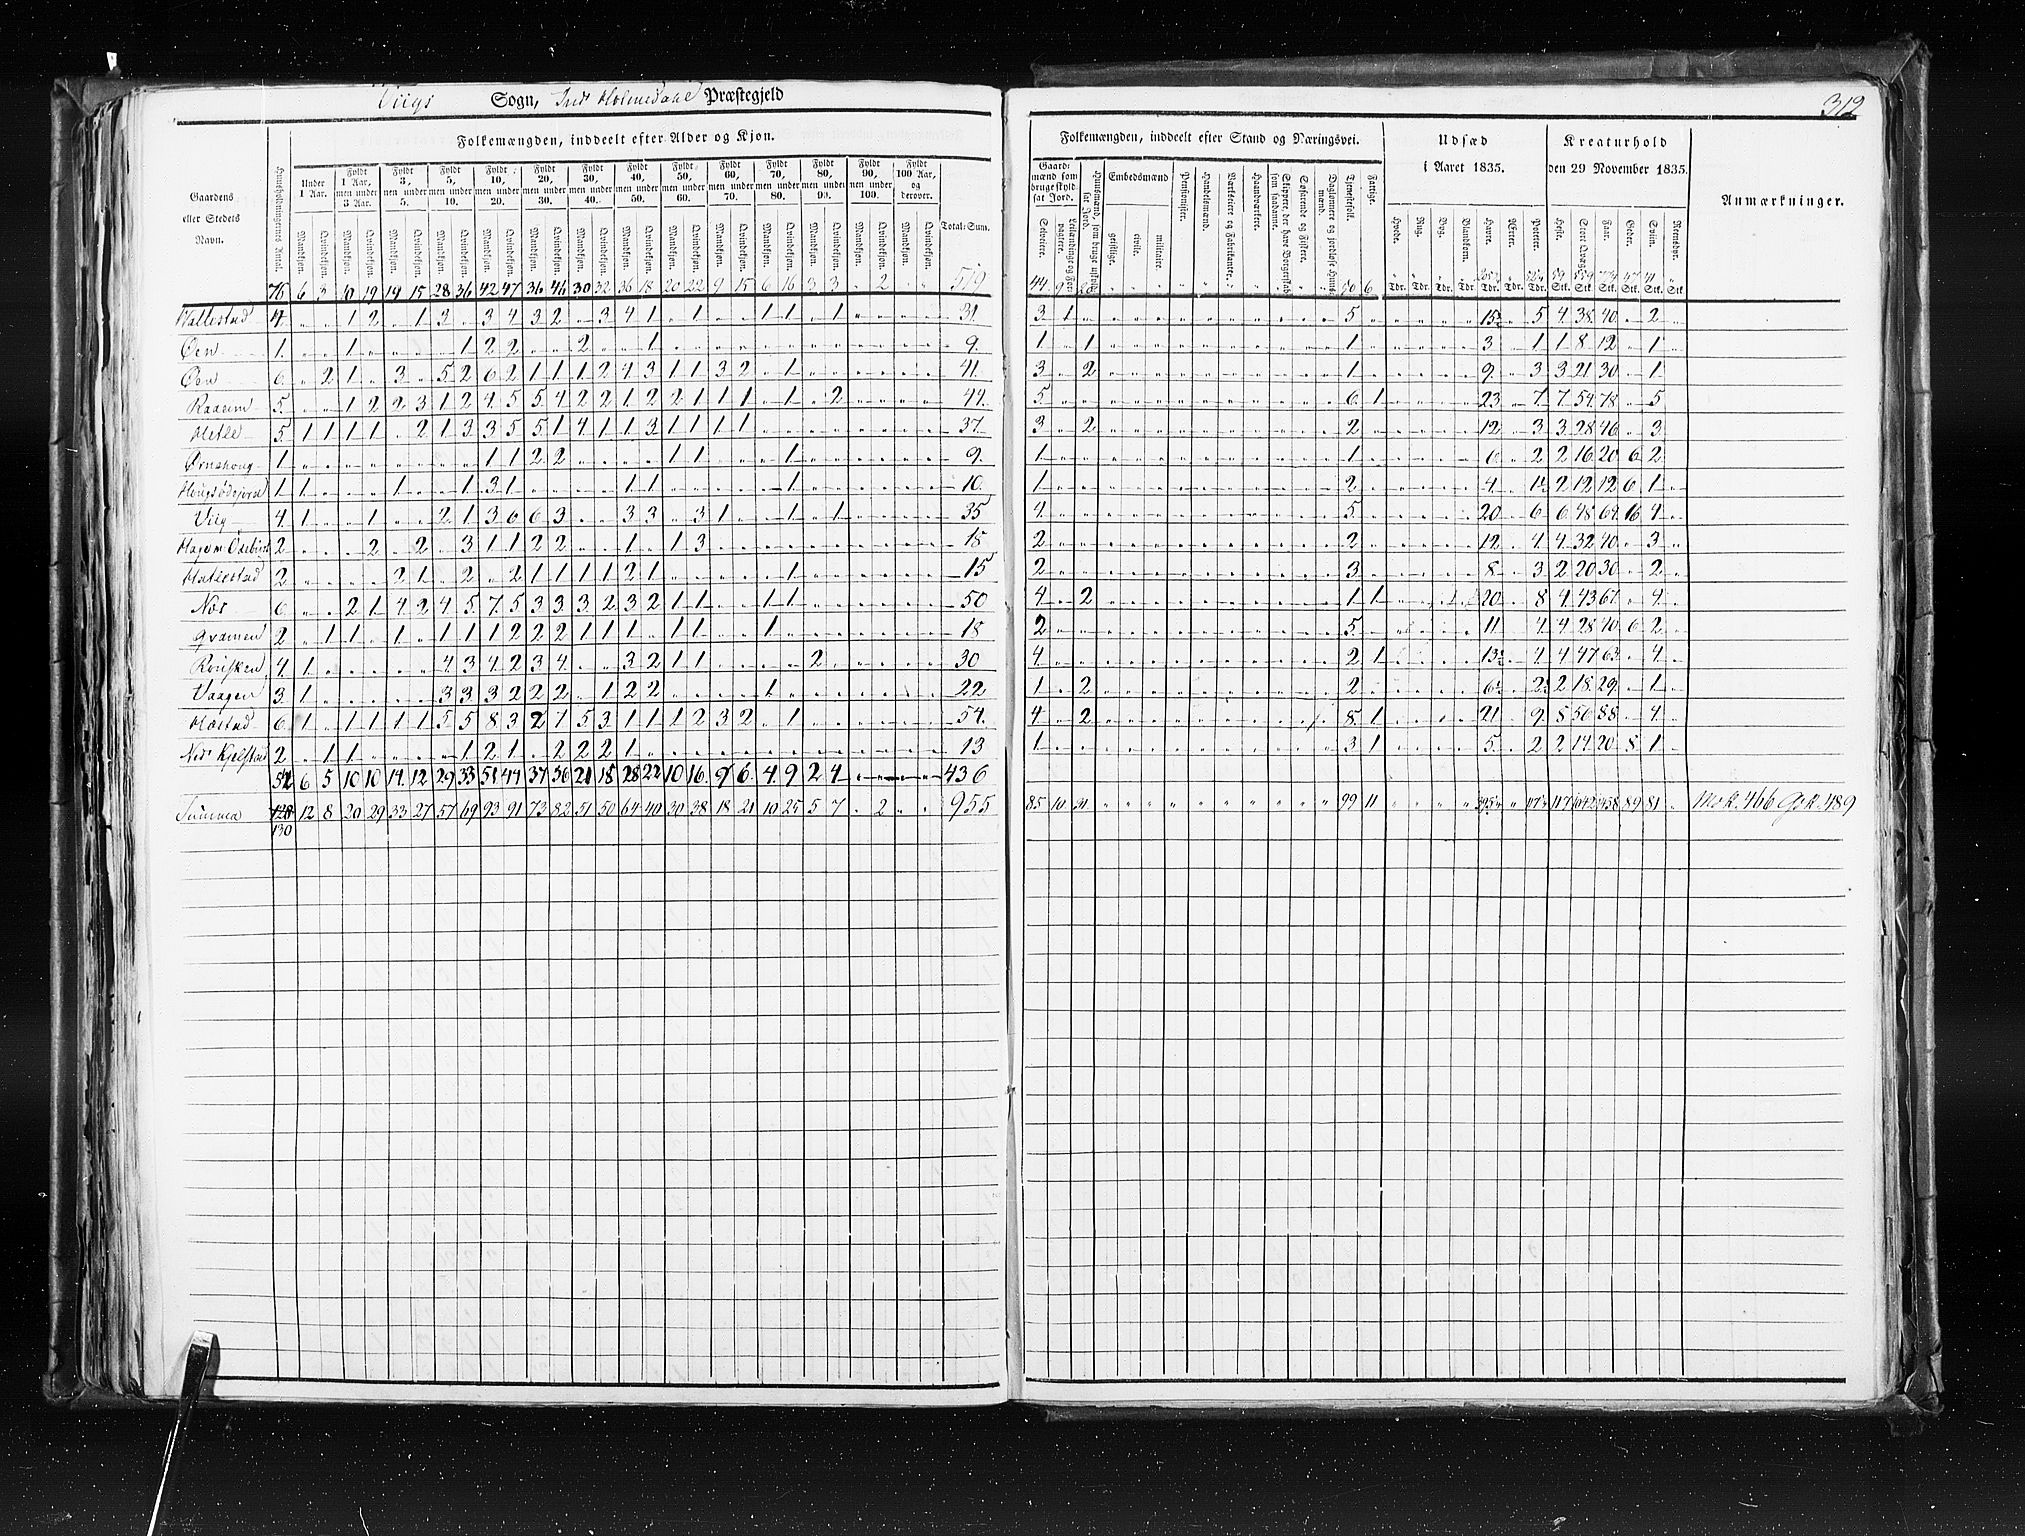 Viigs Sogn, Ind Holmedahl Præstegjeld
312
Gaardens eller Stedets Navn.
Huusholdningernes Antal.
Folkemængden, inddeelt efter Alder og Kjøn.
Under 1 Aar.
Fyldt 1 Aar, men under 3 Aar.
Fyldt 3, men under 5.
Fyldt 5, men under 10.
Fyldt 10, men under 20.
Fyldt 20, men under 30.
Fyldt 30, men under 40.
Fyldt 40, men under 50.
Fyldt 50, men under 60.
Fyldt 60, men under 70.
Fyldt 70, men under 80.
Fyldt 80, men under 90.
Fyldt 90, men under 100.
Fyldt 100 Aar, og derover.
Mandkjøn. Qvindekjøn.
Total-Sum.
Folkemængden, inddeelt efter Stand og Næringsvei.
Gaardmænd som bruge skyldsat Jord.
Selveiere.
Leilændinge og Forpagtere.
Huusmænd, som bruge uskyldsat Jord.
Embedsmænd
geistlige. civile. militaire.
Pensionister.
Handelsmænd.
Værkeiere og Fabrikanter.
Haandværkere.
Skippere, der have Borgerskab som saadanne.
Søfarende og Fiskere.
Daglønnere og jordløse Huusmænd.
Tjenestefolk.
Fattige.
Udsæd i Aaret 1835.
Hvede. Rug. Byg. Blandkorn. Havre. Ærter. Poteter.
Kreaturhold den 29 November 1835.
Heste. Stort Qvæg. Faar. Geder. Sviin. Reensdyr.
Anmærkninger.
76 6 3 10 19 19 15 28 36 42 47 36 46 30 32 36 18 20 22 9 15 6 16 3 3 " 2 " " 519
Hallestad 4 " " 1 2 " 1 3 " 3 4 3 2 " 3 4 1 " 1 " " 1 1 " 1 31 3 1 5 5 4 38 40 " 2
Øen 1 " " 1 " " " " 1 2 2 " " 2 " " 1 9 1 " 1 1 3 1 1 8 12 " 1
Øen 6 " 2 1 " 3 " 5 2 6 2 1 1 1 2 4 3 1 1 3 2 " 1 41 3 " 2 1 9 3 3 21 30 " 1
Raaum 5 " " 1 2 2 3 1 2 4 5 5 4 2 2 1 2 2 1 1 1 " 1 " 2 44 5 6 1 23 7 7 54 78 " 5
Hetle 5 1 1 1 1 " 2 1 3 3 5 5 1 4 1 1 3 1 1 1 1 37 3 " 2 2 12 3 3 28 46 " 3
Ørnehoug 1 1 1 2 2 1 1 1 9 1 1 6 2 2 16 20 6 2
1 1 1 1 3 1 1 1 1 10 1 2 4 2 12 12 6 1
Viig 4 1 " " 1 " " 2 1 3 6 6 3 " " 3 3 " 3 1 " " 1 " 1 35 4 5 20 6 6 48 64 16 4
2 " " " 2 " 2 " 3 1 1 2 2 " " 1 " 1 3 18 2 2 12 4 4 32 40 " 3
Hatlestad 2 " " " " 2 1 " 2 " 2 1 1 1 1 2 1 1 15 2 3 8 3 2 20 30 " 2
Nes 6 " " 2 1 4 2 4 5 7 5 3 3 3 2 3 2 1 1 " " 1 1 50 4 " 2 1 1 20 8 4 43 67 " 4
Qvamen 2 " 1 1 " 1 " 1 1 1 2 2 2 1 1 1 " 1 1 " " 1 18 2 5 11 4 4 28 40 6 2
4 1 " " " " " 4 3 4 2 3 4 " " 3 2 1 1 2 30 4 2 1 4 4 47 63 " 4
Vaagen 3 1 " " " " " 3 3 3 2 2 2 " 1 2 2 1 22 1 " 2 2 2 18 29 " 1
Hæstad 6 1 " 1 1 1 1 5 5 8 3 2 7 5 3 1 1 1 2 3 2 " 1 54 4 " 2 8 1 21 9 8 56 88 " 4
Nes Kjelstad 2 " 1 1 " " " " 1 2 1 " 2 2 2 1 13 1 3 1 5 2 2 14 20 8 1
6 5 10 10 14 12 29 33 51 44 37 36 21 18 28 22 10 16 9 6 4 9 2 4 436
Summa 128 12 8 20 29 33 27 57 69 93 91 73 82 51 50 64 40 30 38 18 21 10 25 5 7 " 2 " " 955 85 10 31 99 11 117 1042 1458 89 81 " Mk. 466 Qk. 489
130